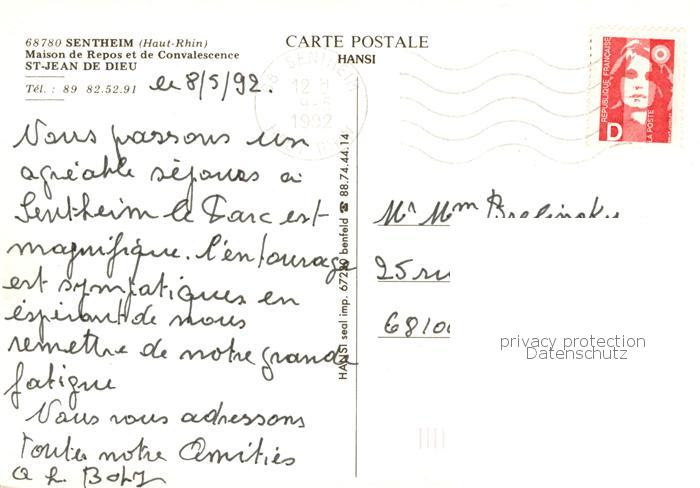 68780 SENTHEIM (Haut-Rhin)
Maison de Repos et de Convalescence
ST-JEAN DE DIEU
Tél. : 89 82.52.91
le 8/5/92.
CARTE POSTALE
HANSI
SENTHEIM
12 H
1992
RÉPUBLIQUE FRANÇAISE
D
LA POSTE
Nous passons un
agréable séjours a
Sentheim le Parc est
magnifique. l'entourage
est sympatiques en
espérant de nous
remettre de notre grande
fatigue
Nous vous adressons
Toutes notre Amitiés
HANSI seal imp. 67230 benfeld ☎ 88.74.44.14
Mr Mm
25 ru
6810
privacy protection
Datenschutz